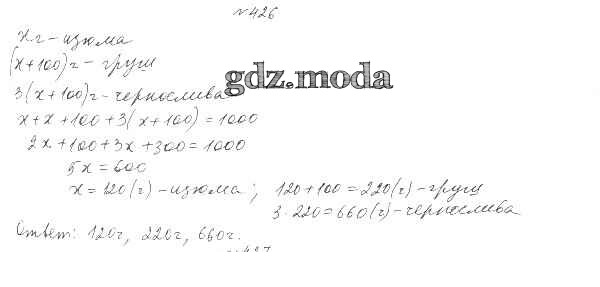 №426
x г - изюма
(x+100) г - груш
gdz.moda
3(x+100) г - чернослива
x+x+100+3(x+100)=1000
2x+100+3x+300=1000
5x=600
x=120(г)-изюма; 120+100=220(г)-груш
3·220=660(г)-чернослива
Ответ: 120г, 220г, 660г.